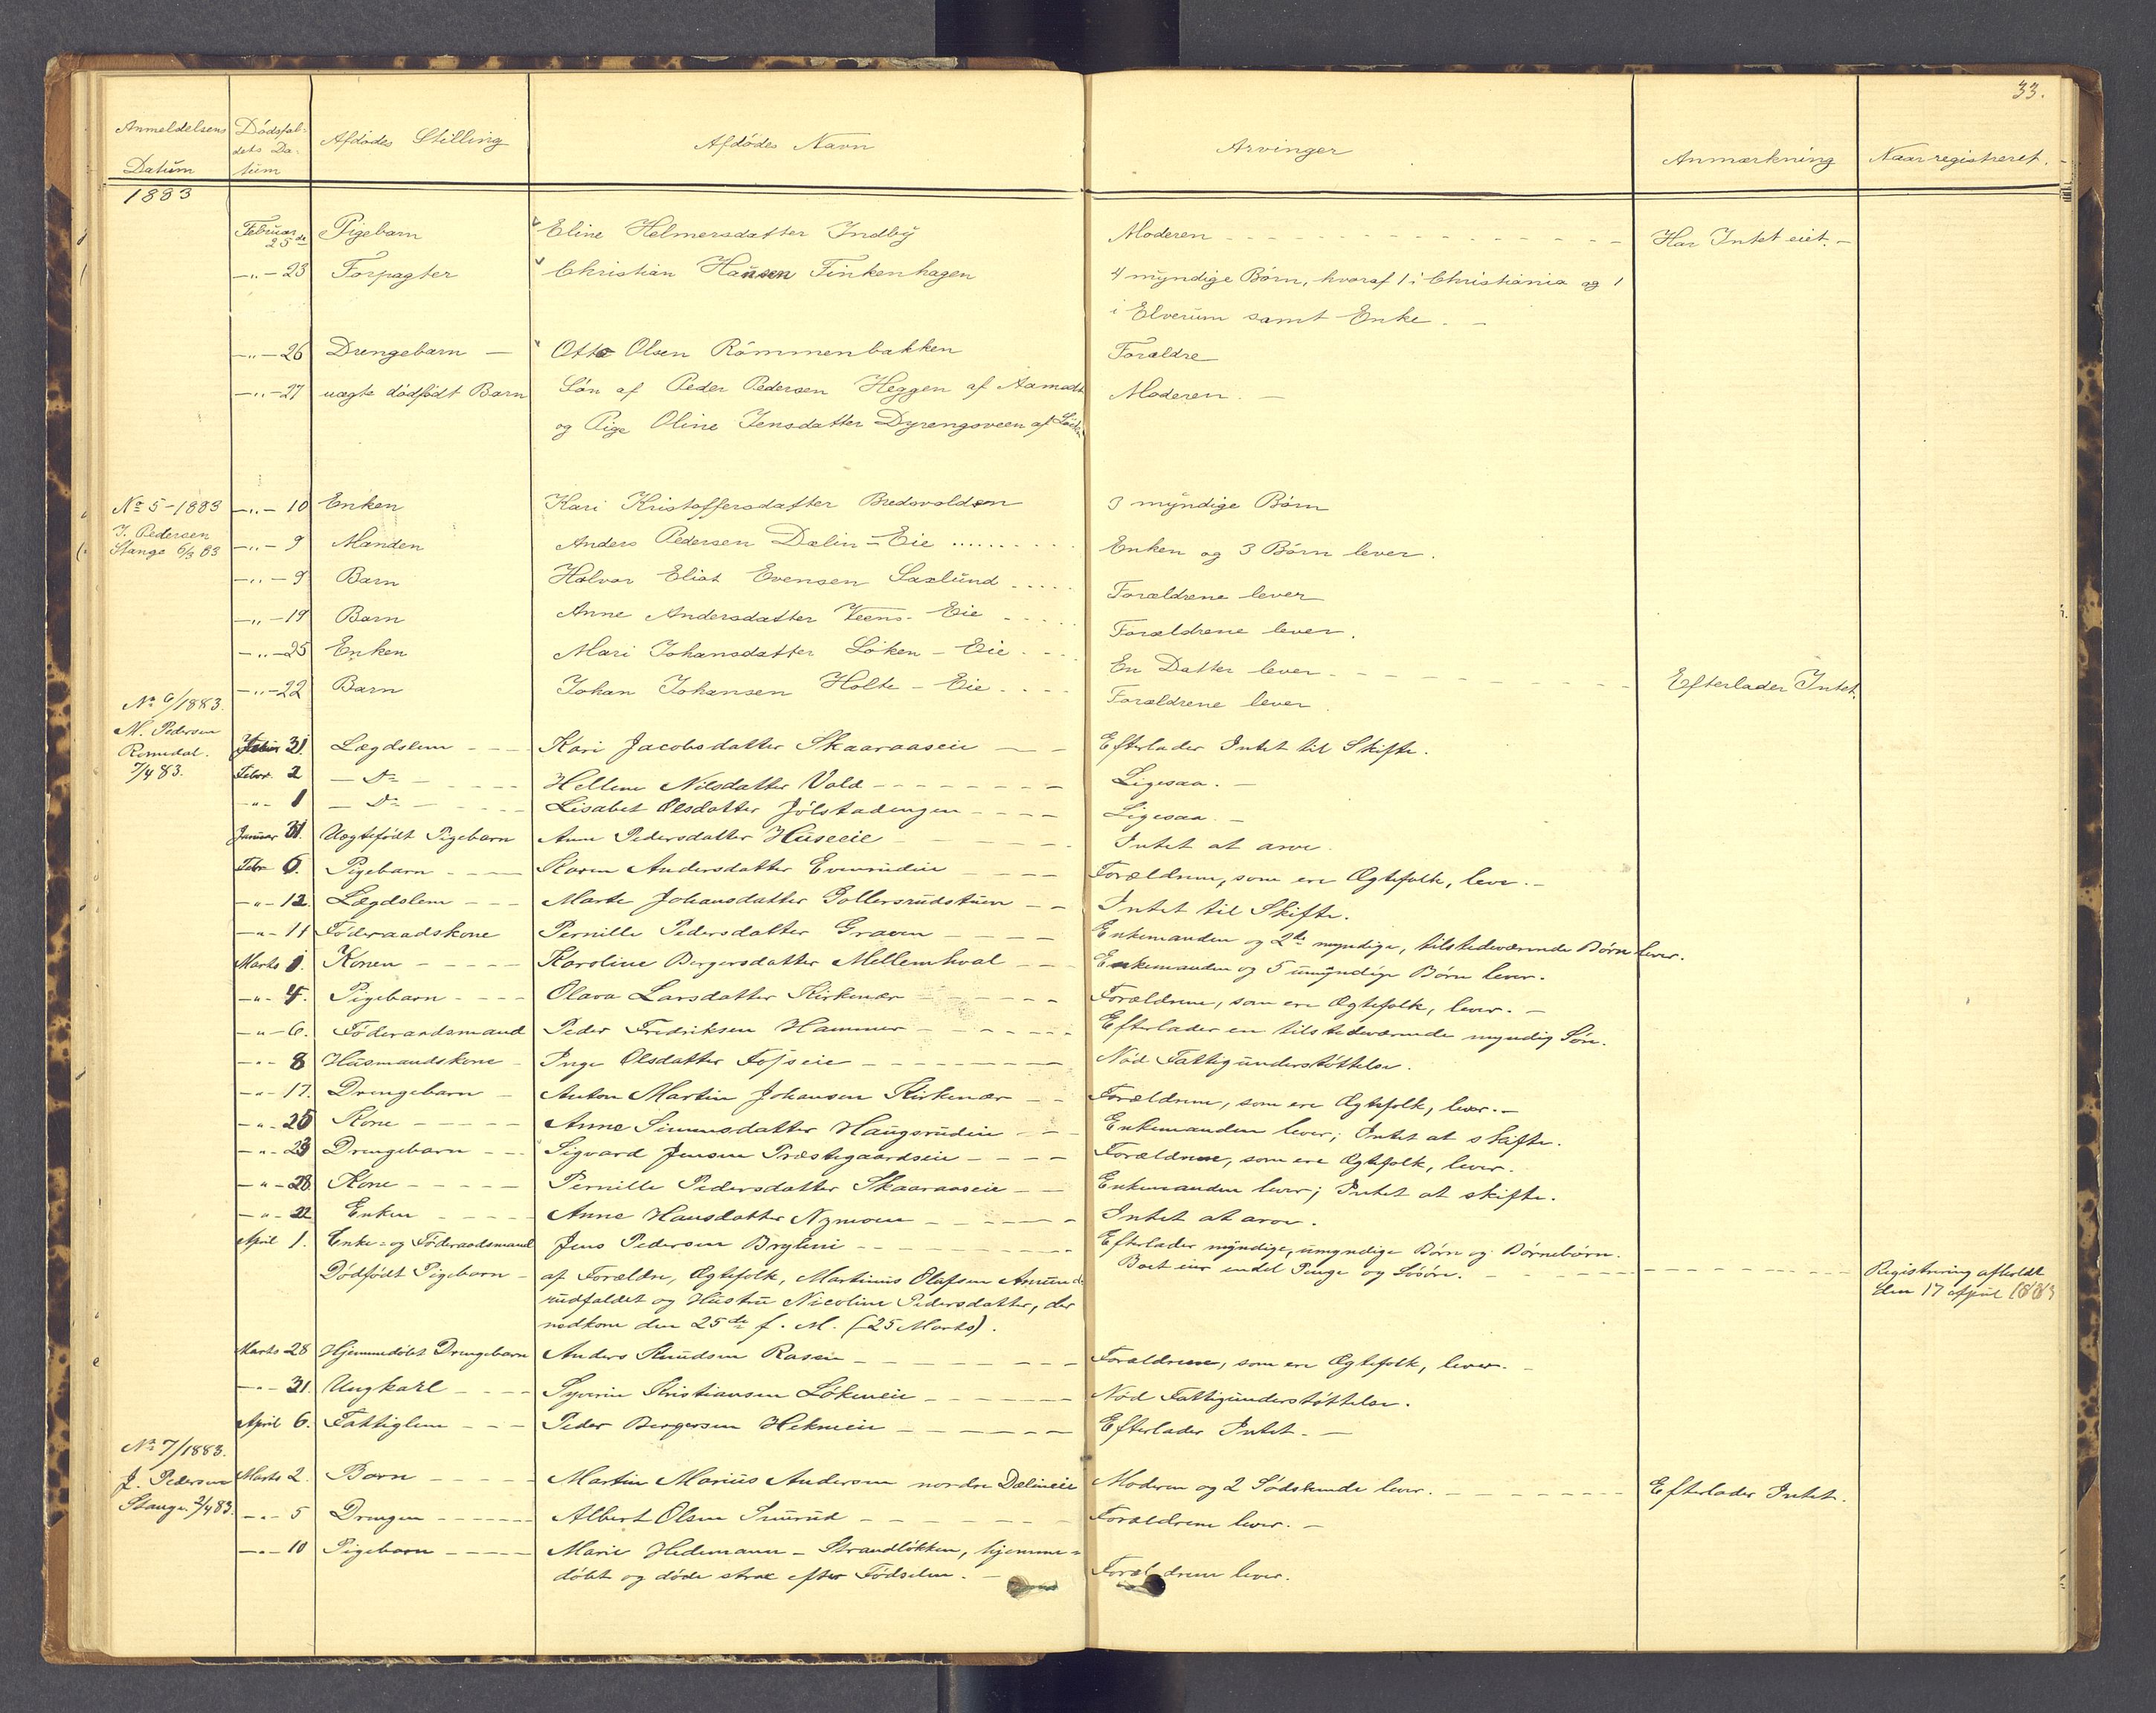 33.
Anmeldelsens Datum Dødsfaldets Datum Afdødes Stilling Afdødes Navn Arvinger Anmærkning Naar registreret.
1883
Februar 25de Pigebarn Eline Helmersdatter Indbÿ Moderen - - - Har Intet eiet. -
-"- 23 Forpagter Christian Hansen Finkenhagen 4 myndige Børn, hvoraf 1 i Christiania og 1
i Elverum samt Enke. -
-"- 26 Drengebarn - Otto Olsen Rømmenbakken Forældre
-"- 27 uægte dødfødt Barn Søn af Peder Pedersen Heggen af Aamodt Moderen. -
og Pige Oline Jensdatter Dyrengsveen af
No 5-1883 -"- 10 Enken Kari Kristoffersdatter Bredvolden 3 myndige Børn
J. Pedersen
Stange 6/3 83 -"- 9 Manden Anders Pedersen Dælin-Eie Enken og 3 Børn lever.
-"- 9 Barn Halvor Elias Evensen Saxlund Forældrene lever
-"- 19 Barn Anne Andersdatter Veens-Eie Forældrene lever.
-"- 25 Enken Mari Johansdatter Løken-Eie En Datter lever - - - Efterlader Intet.
-"- 22 Barn Johan Johansen Holte-Eie Forældrene lever.
No 6/1883.
M. Pedersen
Romedal.
7/4 83.
31. Lægdslem Kari Jacobsdatter Skaaraaseie Efterlader Intet til Skifte.
Febr. 2 - Do - Hellene Nilsdatter Vold Ligesaa. -
-"- 1 - Do - Lisabet Olsdatter Jølstadengen Ligesaa. -
Januar 31. Uægtefødt Pigebarn Anne Pedersdatter Huseeie Intet at arve.
Febr 6. Pigebarn Karen Andersdatter Evenrudeie Forældrene, som ere Ægtefolk, lever. -
-"- 12. Lægdslem Marte Johansdatter Gollersrudstuen Intet til Skifte.
-"- 11 Føderaadskone Pernille Pedersdatter Graven Enkemanden og 2de myndige, tilstedeværende Børn lever.
Marts 1. Konen Karoline Bergersdatter Mellemhval Enkemanden og 5 umyndige Børn lever.
-"- 4. Pigebarn Olava Larsdatter Kirkenær Forældrene, som ere Ægtefolk, lever. -
-"- 6. Føderaadsmand Peder Fredriksen Hammer Efterlader en tilstedeværende myndig Søn.
-"- 8 Husmandskone Inge Olsdatter Føjseie Nød Fattigunderstøttelse.
-"- 17. Drengebarn Anton Martin Johansen Kirkenær Forældrene, som ere Ægtefolk, lever. -
-"- 25 Kone Anne Simensdatter Haugsrudeie Enkemanden lever; Intet at skifte.
-"- 23 Drengebarn Sigvard Jensen Præstegaardseie Forældrene, som ere Ægtefolk, lever.
-"- 28. Kone Pernille Pedersdatter Skaaraaseie Enkemanden lever; Intet at skifte.
-"- 22 Enken Anne Hansdatter Nymoen Intet at arve.
April 1. Enke- og Føderaadsmand Jens Pedersen Bryhni Efterlader myndige, umyndige Børn og Børnebørn.
Boet eier endel Penge og Løsøre. - - - Registrering afholdt
den 17 april 1883
Dødfødt Pigebarn - af Forældre, Ægtefolk, Martinus Olafsen
rudfaldet og Hustru Nicoline Pedersdatter, der
nedkom den 25de f. M. (25 Marts).
Marts 28 Hjemmedøbt Drengebarn Anders Knudsen Raseie Forældrene, som ere Ægtefolk, lever. -
-"- 31. Ungkarl Syverin Kristiansen Løkeneie Nød Fattigunderstøttelse.
April 6. Fattiglem Peder Bergersen Hekneeie Efterlader Intet. -
No 7/1883.
J. Pedersen
Stange. 2/4 83.
Marts 2. Barn Martin Marius Andersen nordre Dælineie Moderen og 2 Sødskende lever. - - - Efterlader Intet.
-"- 5 Drengen Albert Olsen Forældrene lever. -
-"- 10 Pigebarn Marie Hedemann - Strandløkken, hjemme-
døbt og døde strax efter Fødselen. - Forældrene lever.